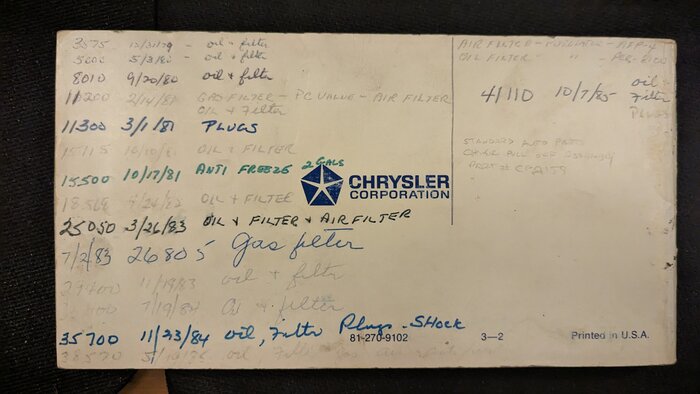 3575 12/31/79 - oil + filter
5600 5/3/80 - oil + filter
8010 9/20/80 oil + filter
11200 2/14/81 GAS FILTER - PC VALVE - AIR FILTER
OIL + Filter
11300 3/1/81 PLUGS
15115 10/10/81 OIL + FILTER
15500 10/17/81 ANTI FREEZE 2 GALS
OIL + FILTER
25050 3/26/83 OIL + FILTER + AIR FILTER
7/2/83 26805 Gas filter
11/19/83 oil + filter
7/19/84 Oil + filter
35700 11/23/84 oil, Filter Plugs - SHock
oil, Filter
CHRYSLER
CORPORATION
81-270-9102 3-2 Printed in U.S.A.
AIR FILTER - PUROLATOR -
OIL FILTER " " - PER-
41110 10/7/85 oil -
Filter
PLUGS
STANDARD AUTO PARTS